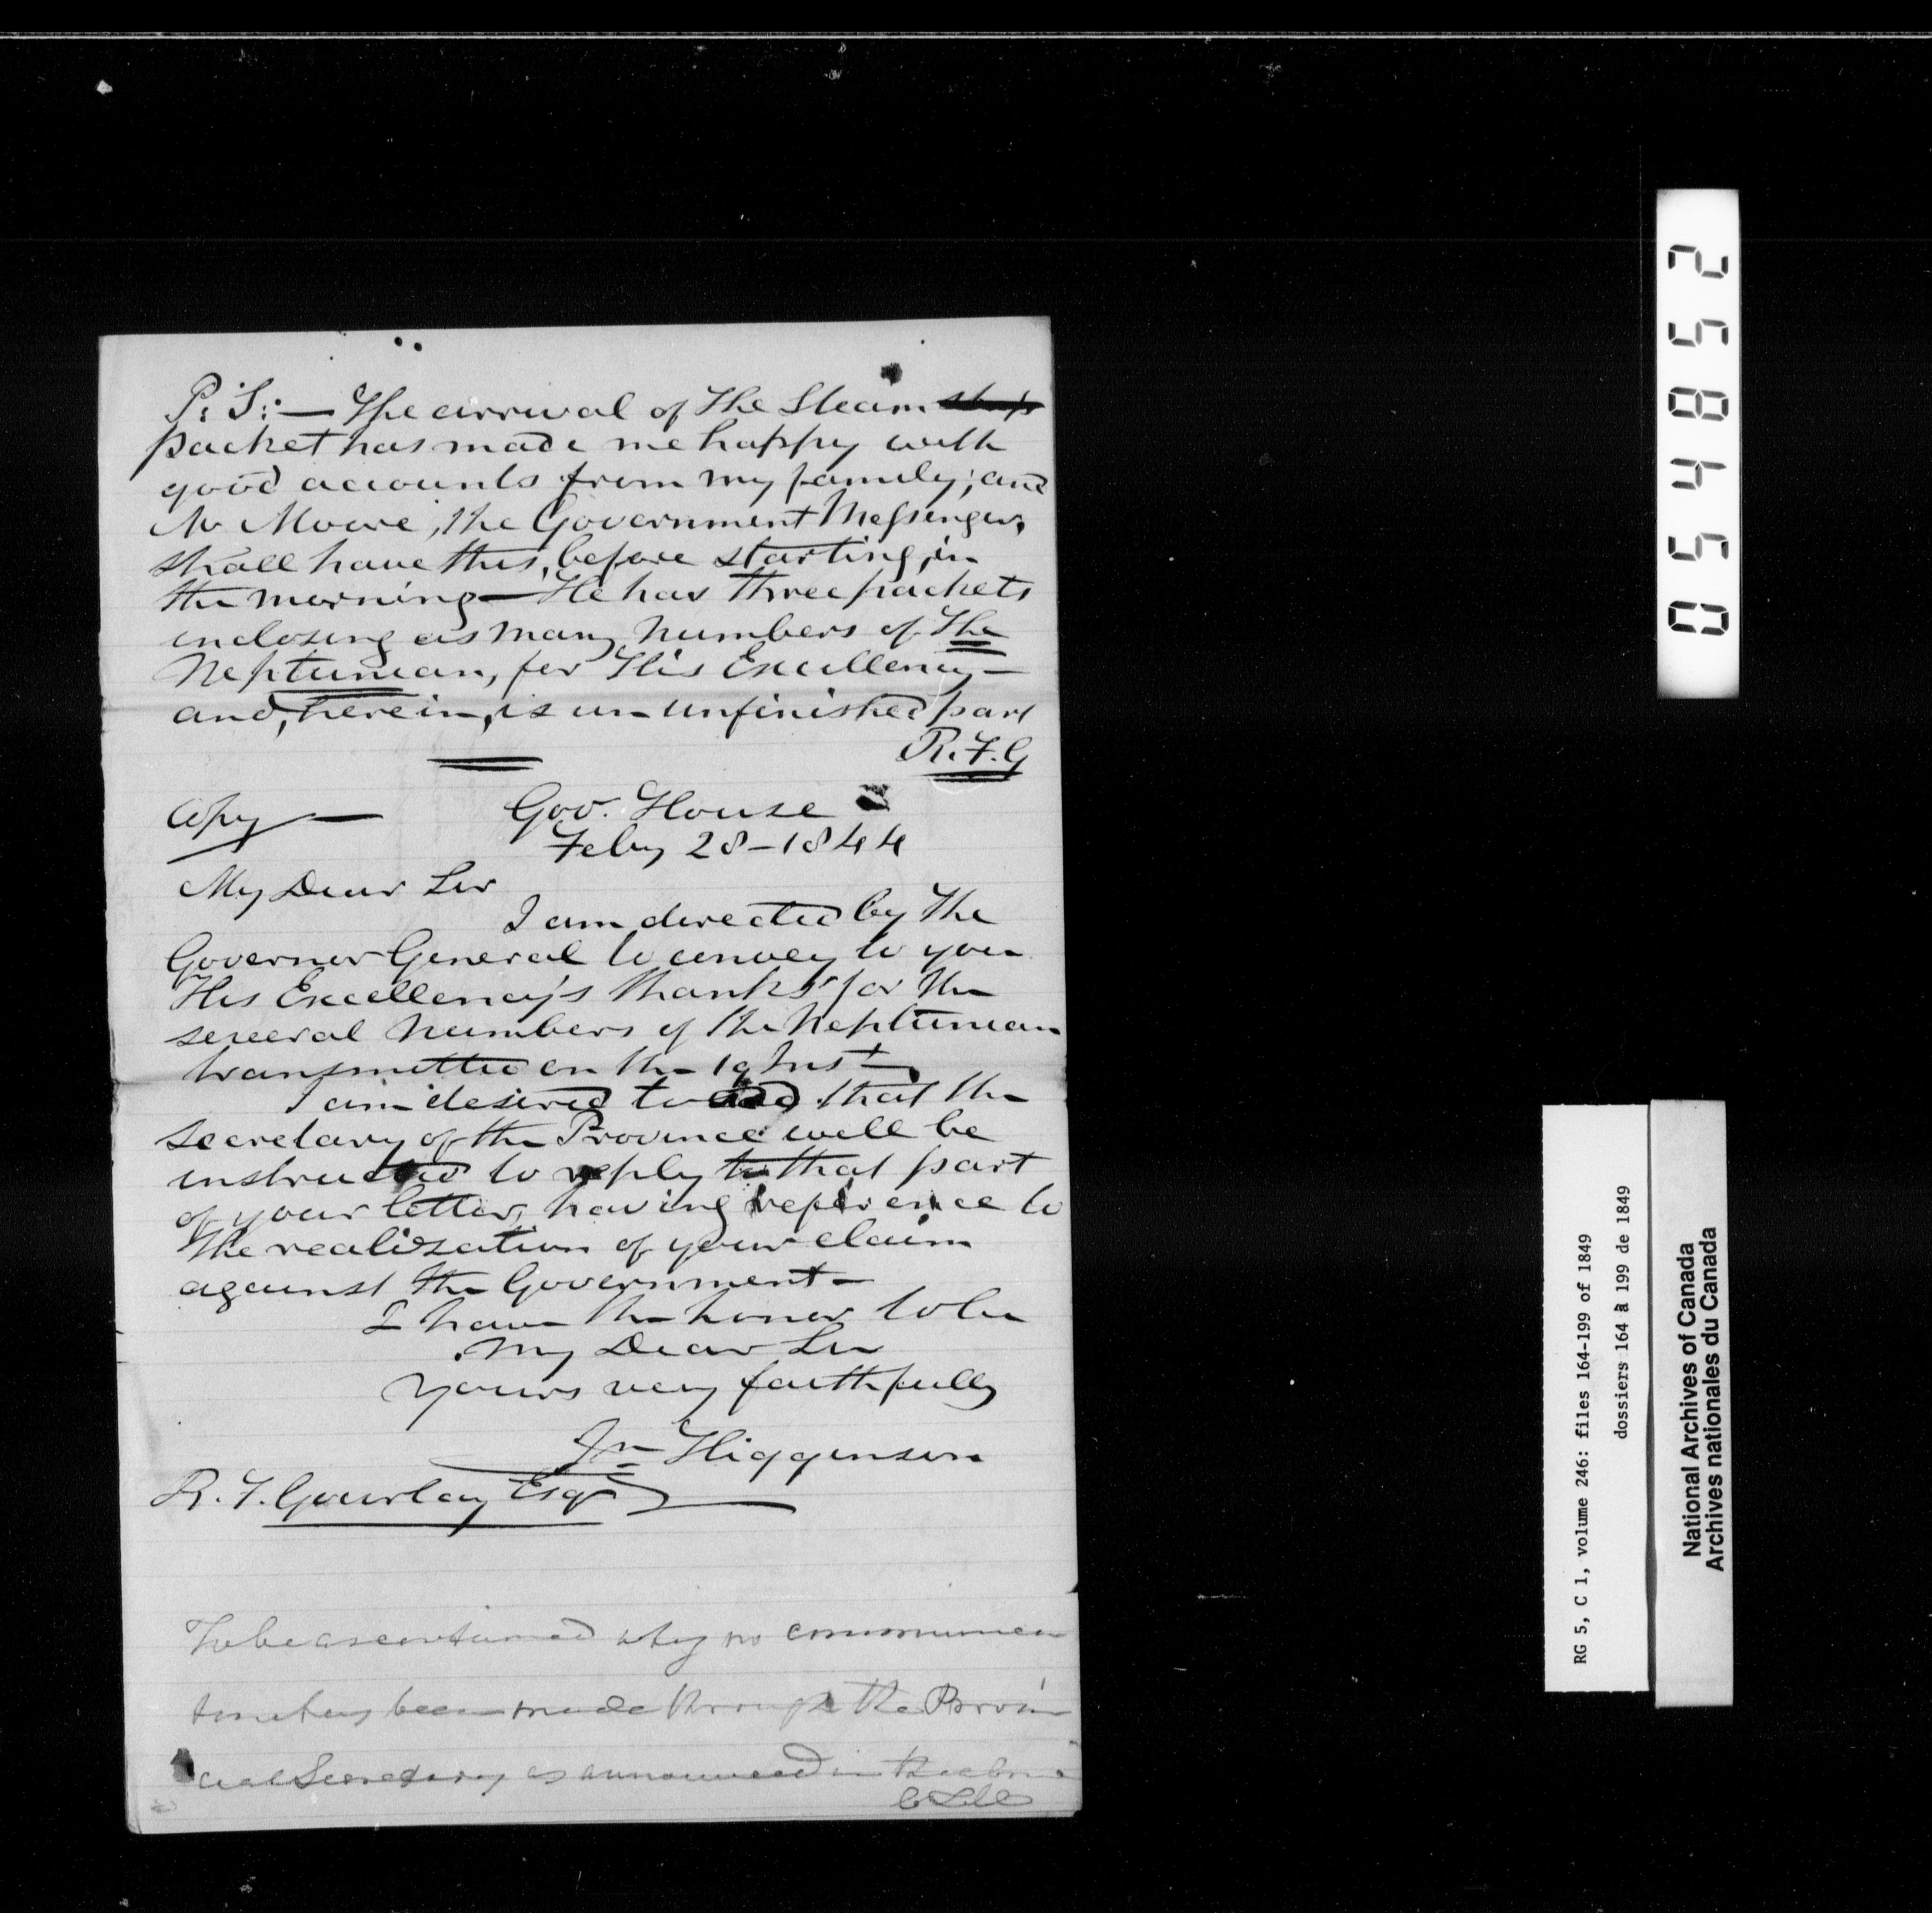 P. S: — The arrival of The Steam ship
packet has made me happy with
good accounts from my family; and
Mr Moore, the Government Messenger,
shall have this, before starting, in
the morning — He has three packets
inclosing as many numbers of The
Neptunian, for His Excellency —
and, herein, is an unfinished part
R. F. G
Copy — Gov. House
Feby 28 – 1844
My Dear Sir
I am directed by The
Governor General to convey to you
His Excellency's thanks for the
several numbers of the Neptunian
transmitted on the 19 Inst
I am desired to add that the
Secretary of the Province will be
instructed to reply to that part
of your letter, having reference to
the realization of your claim
against the Government —
I have the honor to be
My Dear Sir
Yours very faithfully
Jn Higginson
R. F. Gourlay Esqr
To be ascertained why no communica
tion has been made through the Provin
cial Secretary as announced in the above
054852
RG 5, C 1, volume 246: files 164-199 of 1849
dossiers 164 à 199 de 1849
National Archives of Canada
Archives nationales du Canada